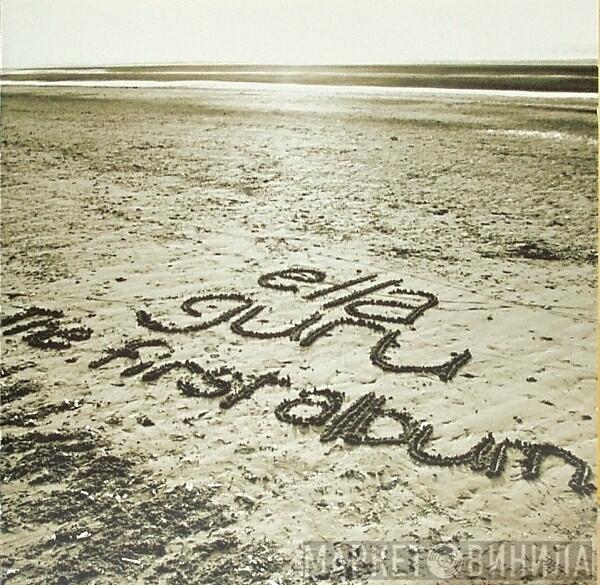 ella
guru
the first album
МАРКЕТ ВИНИЛА